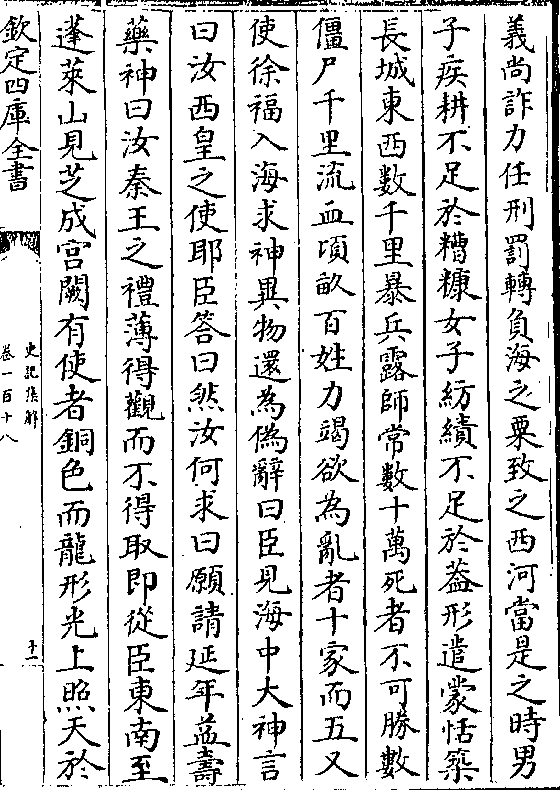 義尚詐力任刑罰轉負海之粟致之西河當是之時男
子疾耕不足於糟糠女子紡績不足於葢形遣蒙恬築
長城東西數千里暴兵露師常數十萬死者不可勝數
僵尸千里流血頃畝百姓力竭欲為亂者十家而五又
使徐福入海求神異物還為偽辭曰臣見海中大神言
曰汝西皇之使耶臣答曰然汝何求曰願請延年益壽
藥神曰汝秦王之禮薄得觀而不得取即從臣東南至
蓬萊山見芝成宫闕有使者銅色而龍形光上照天於
欽定四庫全書
史記集解
卷一百十八
十一